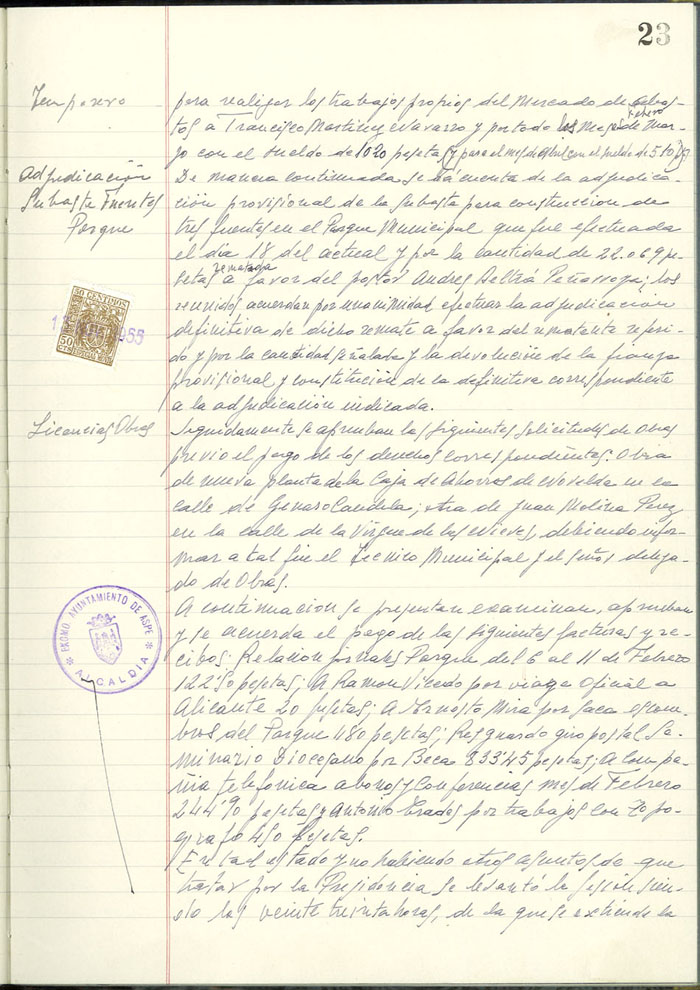 23
Temporero
para realizar los trabajos propios del Mercado de abas-
tos a Francisco Martinez Navarro y por todo los Meses de Mar-
Febrero
zo con el sueldo de 1020 pesetas y para el mes de Abril con el sueldo de 510
Adjudicación
Subasta Fuentes
Parque
De manera continuada se dá cuenta de la adjudica-
ción provisional de la Subasta para construccion de
tres fuentes en el Parque Municipal que fué efectuada
el dia 18 del actual y por la cantidad de 22.069 pe-
rematada
setas a favor del postor Andres Beltrá Peñarroya; los
reunidos acuerdan por unanimidad efectuar la adjudicación
definitiva de dicho remate a favor del rematante referi-
do y por la cantidad señalada y la devolución de la fianza
provisional y constitución de la definitiva correspondiente
a la adjudicación indicada.
50 CENTIMOS
50
CTS
1955
Licencias Obras
Seguidamente se aprueban las siguientes solicitudes de Obras
previo el pago de los derechos correspondientes. Obra
de nueva planta de la Caja de Ahorros de Novelda en la
calle de Genaro Candela; otra de Juan Molina Perez
en la calle de la Virgen de las Nieves, debiendo infor-
mar a tal fin el Tecnico Municipal y el señor delega-
do de Obras.
EXCMO. AYUNTAMIENTO DE ASPE
ALCALDIA
A continuación se presentan examinan, aprueban
y se acuerda el pago de las siguientes facturas y re-
cibos; Relacion jornales Parque del 6 al 11 de Febrero
122'50 pesetas; A Ramon Vicedo por viage Oficial a
Alicante 20 pesetas; A Ernesto Mira por saca escom-
bros del Parque 480 pesetas; Resguardo giro postal Se-
minario Diocesano por Beca 833'45 pesetas; A Compa-
ñia telefonica abonos y Conferencias mes de Febrero
244'90 pesetas y Antonio Prades por trabajos con Topo-
grafo 450 pesetas.
En tal estado y no habiendo otros asuntos de que
tratar por la Presidencia se levantó la sesión sien-
do las veinte treinta horas, de la que se extiende la